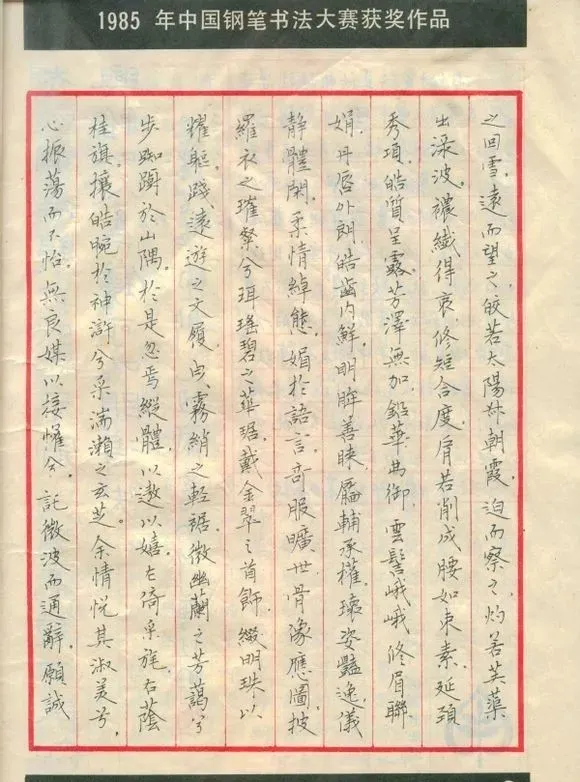 1985 年中国钢笔书法大赛获奖作品
之回雪。遠而望之,皎若太陽升朝霞。迫而察之,灼若芙蕖
出淥波。襛纖得衷,修短合度。肩若削成,腰如束素。延頸
秀項,皓質呈露。芳澤無加,鉛華弗御。雲髻峨峨,修眉聯
娟。丹唇外朗,皓齒内鮮,明眸善睞,靨輔承權。瓌姿豔逸,儀
静體閑。柔情綽態,媚於語言。奇服曠世,骨像應圖。披
羅衣之璀粲兮,珥瑤碧之華琚。戴金翠之首飾,綴明珠以
耀軀。踐遠遊之文履,曳霧綃之輕裾。微幽蘭之芳藹兮,
步踟躕於山隅。於是忽焉縱體,以遨以嬉。左倚采旄,右蔭
桂旗。攘皓腕於神滸兮,采湍瀨之玄芝。余情悦其淑美兮,
心振蕩而不怡。無良媒以接懽兮,託微波而通辭。願誠